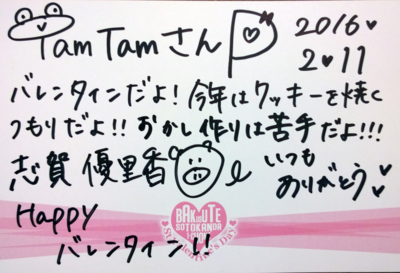 TamTamさん
2016♥
2♥11
バレンタインだよ!今年はクッキーを焼く
つもりだよ!!おかし作りは苦手だよ!!!
志賀 優里香
いつも
ありがとう♥
Happy
バレンタイン!!
BAKUTE
SOTOKANDA